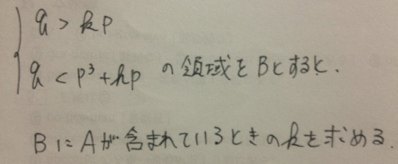 q > kp
q < p³ + kp の領域をBとすると.
BにAが含まれているときのkを求める.